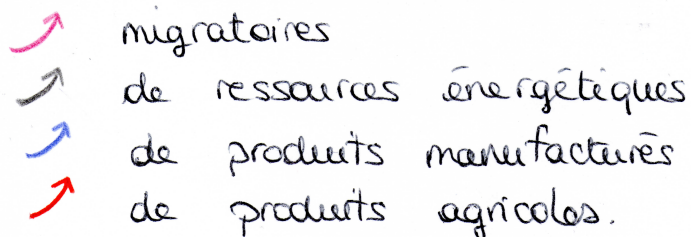 migratoires
de ressources énergétiques
de produits manufacturés
de produits agricoles.